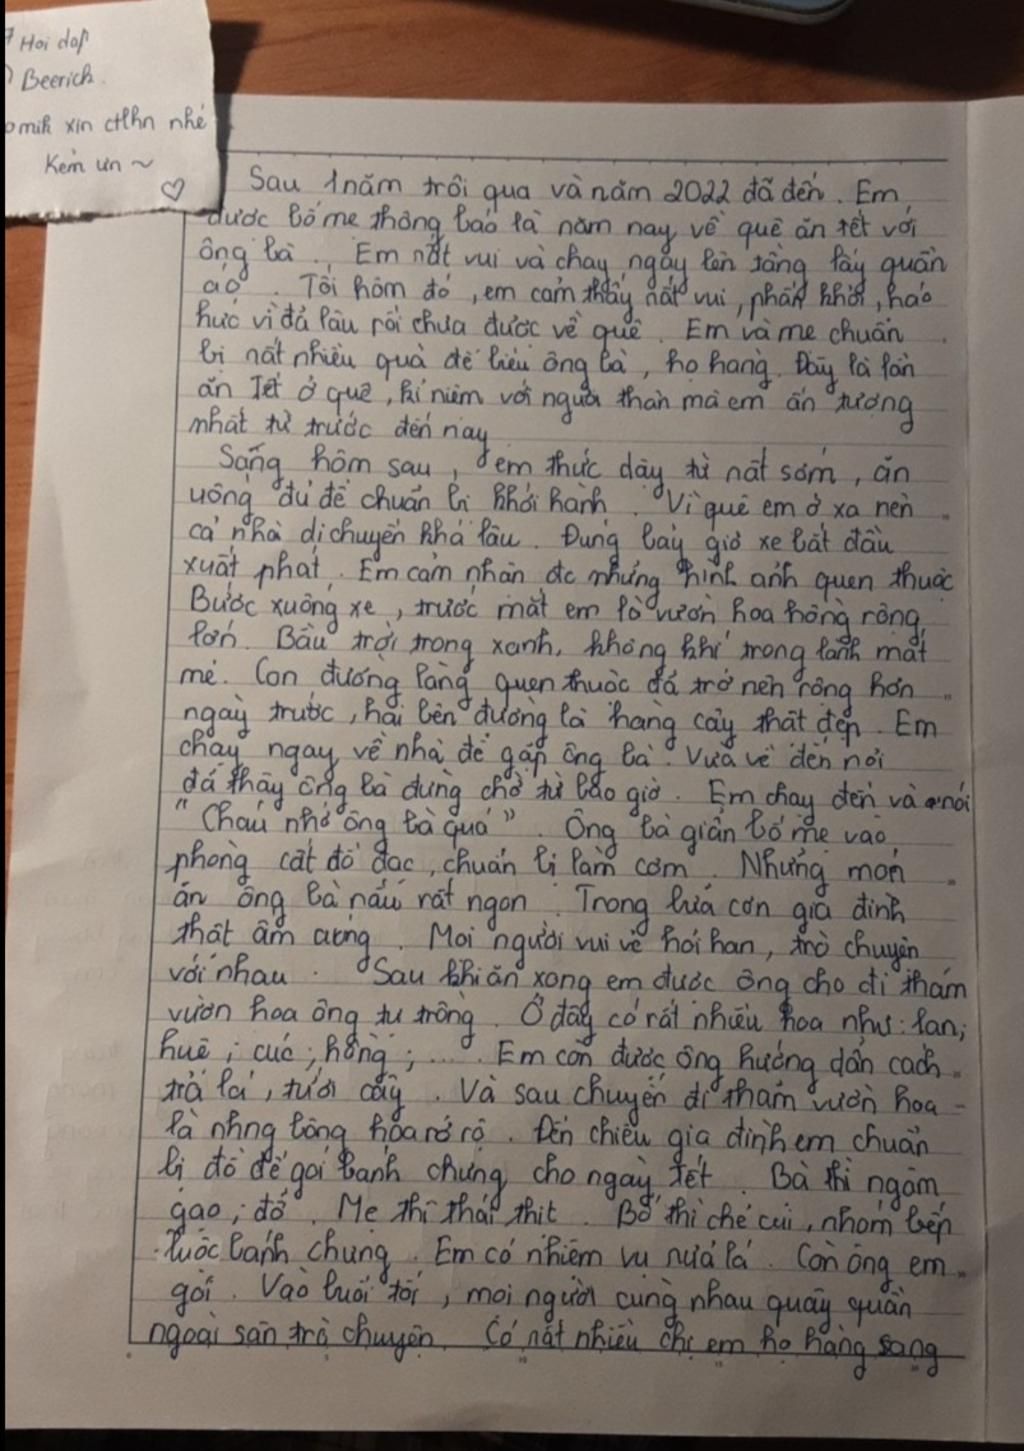 Hoi dap
Beerich.
mik xin ctlhn nhé
Kẻm ưn ~
Sau 1 năm trôi qua và năm 2022 đã đến. Em
được bố mẹ thông báo là năm nay về quê ăn tết với
ông bà. Em nất vui và chạy ngay lên tầng lấy quần
áo. Tối hôm đó, em cảm thấy nất vui, phấn khởi, háo
hức vì đã lâu rồi chưa được về quê. Em và mẹ chuẩn
bị nất nhiều quà để biếu ông bà, họ hàng. Đây là lần
ăn Tết ở quê, kỉ niệm với người thân mà em ấn tượng
nhất từ trước đến nay
Sáng hôm sau, em thức dậy từ nất sớm, ăn
uống đủ để chuẩn bị khởi hành. Vì quê em ở xa nên
cả nhà di chuyển khá lâu. Đúng bảy giờ xe bắt đầu
xuất phát. Em cảm nhận đc những hình ảnh quen thuộc
Bước xuống xe, trước mắt em là vườn hoa hồng rộng
lớn. Bầu trời trong xanh, không khí trong lành mát
mẻ. Con đường làng quen thuộc đã trở nên rộng hơn
ngày trước, hai bên đường là hàng cây thật đẹp. Em
chạy ngay về nhà để gặp ông bà. Vừa về đến nơi
đã thấy ông bà đứng chờ từ bao giờ. Em chạy đến và nói
"Cháu nhớ ông bà quá". Ông bà giần bố mẹ vào
phòng cất đồ đạc, chuẩn bị làm cơm. Những món
ăn ông bà nấu rất ngon. Trong bữa cơn gia đình
thật ấm cúng. Mọi người vui vẻ hỏi han, trò chuyện
với nhau. Sau khi ăn xong em được ông cho đi thăm
vườn hoa ông tự trồng. Ở đây có rất nhiều hoa như: lan;
huệ; cúc; hồng; .... Em còn được ông hướng dẫn cách
trả lá, tưới cây. Và sau chuyến đi thăm vườn hoa
là nhng bông hoa rớ rộ. Đến chiều gia đình em chuẩn
bị đồ để gói bánh chưng cho ngày tết. Bà thì ngâm
gạo; đỗ. Mẹ thì thái thịt. Bố thì chẻ củi, nhóm bếp
luộc bánh chưng. Em có nhiệm vụ nửa lá. Còn ông em
gói. Vào buổi tối, mọi người cùng nhau quây quần
ngoài sân trò chuyện. Có nất nhiều chị em họ hàng sang